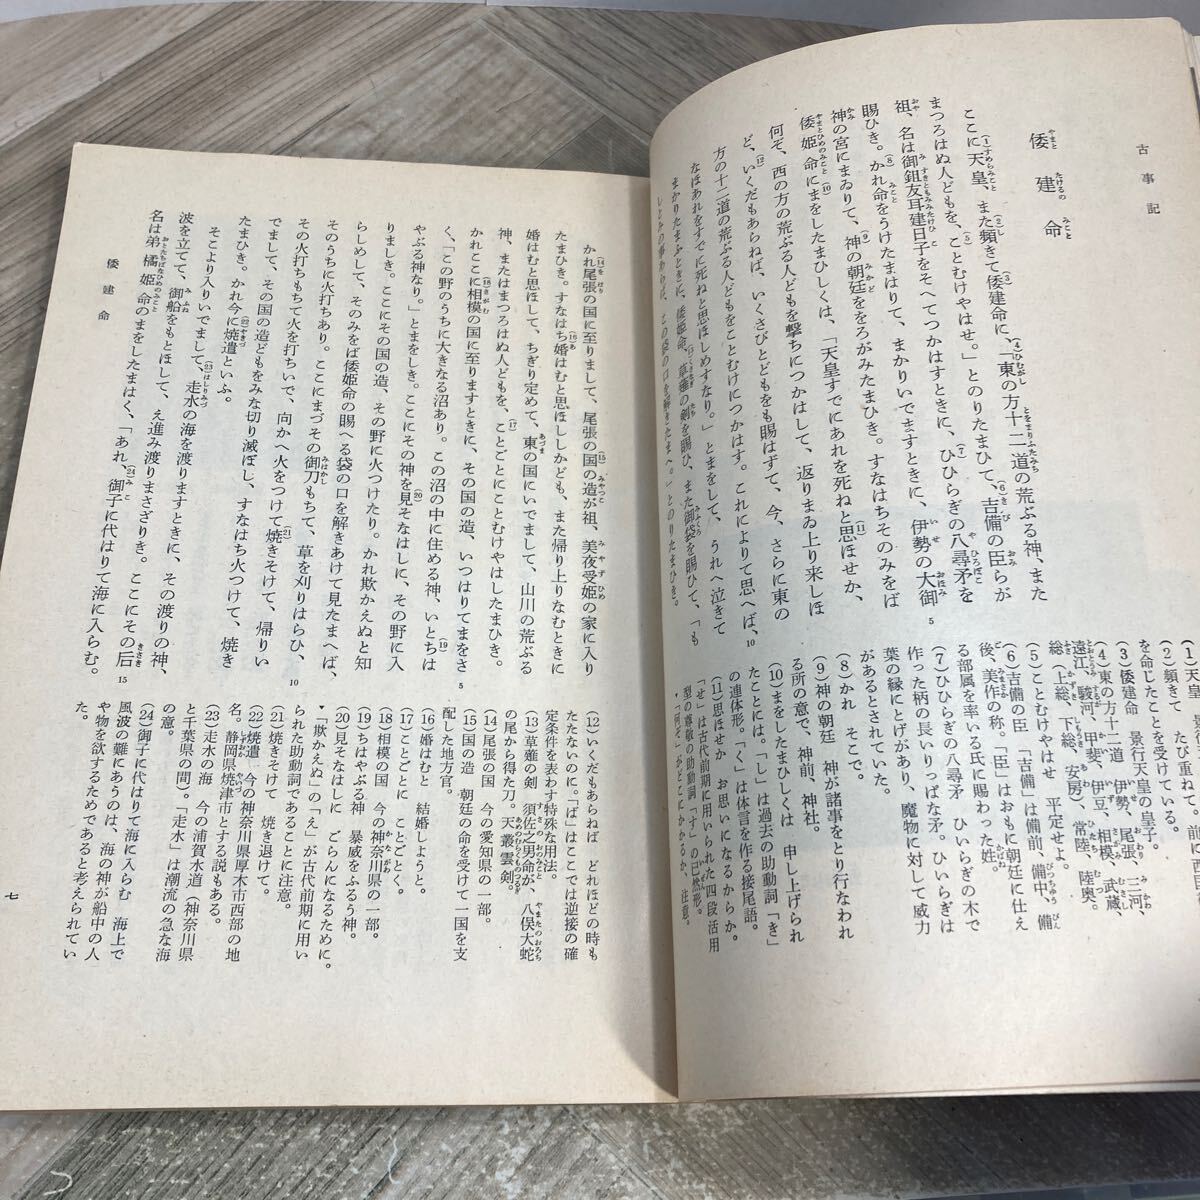 古事記
倭建命
ここに天皇、また頻きて倭建命に、「東の方十二道の荒ぶる神、また
まつろはぬ人どもを、ことむけやはせ。」とのりたまひて、吉備の臣らが
祖、名は御鉏友耳建日子をそへてつかはすときに、ひひらぎの八尋矛を
賜ひき。かれ命をうけたまはりて、まかりいでますときに、伊勢の大御
神の宮にまゐりて、神の朝廷ををろがみたまひき。すなはちそのみをば
倭姫命にまをしたまひしくは、「天皇すでにあれを死ねと思ほせか、
何ぞ、西の方の荒ぶる人どもを撃ちにつかはして、返りまゐ上り来しほ
ど、いくだもあらねば、いくさびとどもをも賜はずて、今、さらに東の
方の十二道の荒ぶる人どもをことむけにつかはす。これによりて思へば、
なほあれをすでに死ねと思ほしめすなり。」とまをして、うれへ泣きて
まかりたまふときに、倭姫命、草薙の剣を賜ひ、また御袋を賜ひて、「も
しとみの事あらば、この袋の口を解きたまへ。」とのりたまひき。
(1)天皇 景行
(2)頻きて たびたび
を命じたことを受けている。
(3)倭建命 景行天皇の皇子。
(4)東の方十二道 伊勢、尾張、三河、
遠江、駿河、甲斐、伊豆、相模、武蔵、
総(上総、下総、安房)、常陸、陸奥。
(5)ことむけやはせ 平定せよ。
(6)吉備の臣 「吉備」は備前、備中、備
後、美作の称。「臣」はおもに朝廷に仕え
る部属を率いる氏に賜わった姓。
(7)ひひらぎの八尋矛 ひいらぎの木で
作った柄の長いりっぱな矛。ひいらぎは
葉の縁にとげがあり、魔物に対して威力
があるとされていた。
(8)かれ そこで。
(9)神の朝廷 神が諸事をとり行なわれ
る所の意で、神前、神社。
(10)まをしたまひしくは 申し上げられ
たことには。「し」は過去の助動詞「き」
の連体形。「く」は体言を作る接尾語。
(11)思ほせか お思いになるからか。
「せ」は古代前期に用いられた四段活用
型の尊敬の助動詞「す」の已然形。
・「何ぞ」がどこにかかるか、注意。
かれ尾張の国に至りまして、尾張の国の造が祖、美夜受姫の家に入り
たまひき。すなはち婚はむと思ほししかども、また帰り上りなむときに
婚はむと思ほして、ちぎり定めて、東の国にいでまして、山川の荒ぶる
神、またはまつろはぬ人どもを、ことごとにことむけやはしたまひき。
かれここに相模の国に至りますときに、その国の造、いつはりてまをさ
く、「この野のうちに大きなる沼あり。この沼の中に住める神、いとちは
やぶる神なり。」とまをしき。ここにその神を見そなはしに、その野に入
りましき。ここにその国の造、その野に火つけたり。かれ欺かえぬと知
らしめして、そのみをば倭姫命の賜へる袋の口を解きあけて見たまへば、
そのうちに火打ちあり。ここにまづその御刀もちて、草を刈りはらひ、
その火打ちもちて火を打ちいで、向かへ火をつけて焼きそけて、帰りい
でまして、その国の造どもをみな切り滅ぼし、すなはち火つけて、焼き
たまひき。かれ今に焼遣といふ。
そこより入りいでまして、走水の海を渡りますときに、その渡りの神、
波を立てて、御船をもとほして、え進み渡りまさざりき。ここにその后
名は弟橘姫命のまをしたまはく、「あれ、御子に代はりて海に入らむ。
倭建命
(12)いくだもあらねば どれほどの時も
たたないのに。「ば」はここでは逆接の確
定条件を表わす特殊な用法。
(13)草薙の剣 須佐之男命が、八俣大蛇
の尾から得た刀。天叢雲剣。
(14)尾張の国 今の愛知県の一部。
(15)国の造 朝廷の命を受けて一国を支
配した地方官。
(16)婚はむと 結婚しようと。
(17)ことごとに ことごとく。
(18)相模の国 今の神奈川県の一部。
(19)ちはやぶる神 暴威をふるう神。
(20)見そなはしに ごらんになるために。
・「欺かえぬ」の「え」が古代前期に用い
られた助動詞であることに注意。
(21)焼きそけて 焼き退けて。
(22)焼遣 今の神奈川県厚木市西部の地
名。静岡県焼津市とする説もある。
(23)走水の海 今の浦賀水道(神奈川県
と千葉県の間)。「走水」は潮流の急な海
の意。
(24)御子に代はりて海に入らむ 海上で
風波の難にあうのは、海の神が船中の人
や物を欲するためであると考えられてい
た。
七